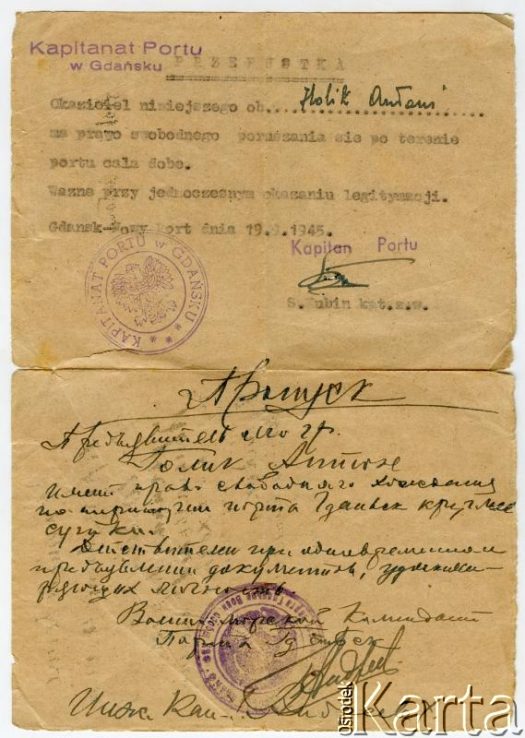 Kapitanat Portu
w Gdańsku
PRZEPUSTKA
Okaziciel niniejszego ob. Holik Antoni
ma prawo swobodnego poruszania sie po terenie
portu cala dobe.
Wazne przy jednoczesnym okazaniu legitymacji.
Gdansk-Nowy Port dnia 19.9.1945.
Kapitan Portu
S. kpt.z.w.
KAPITANAT PORTU w GDAŃSKU
Пропуск
Предъявитель сего гр.
Голик Антон
имеет право свободного хождения
по территории порта Гданьск круглые
сутки.
Действителен при одновременном
предъявлении документов, удостове-
ряющих личность
Военно-морской Комендант
Порта Гданьск
Инж. Кап-
Ośrodek
Karta